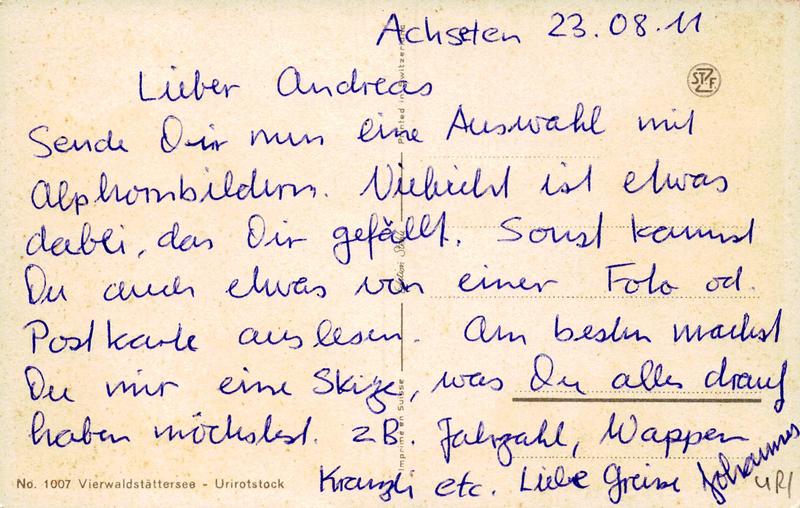 Achseten 23.08.11
Lieber Andreas
Sende Dir nun eine Auswahl mit
Alphornbildern. Vieleicht ist etwas
dabei, das Dir gefällt. Sonst kannst
Du auch etwas von einer Foto od.
Postkarte auslesen. Am besten machst
Du mir eine Skize, was Du alles drauf
haben möchstest. zB. Jahrzahl, Wappen
Kranzli etc. Liebe Grüsse Johannes
No. 1007 Vierwaldstättersee - Urirotstock
URI
Printed in Switzerland
Imprimé en Suisse